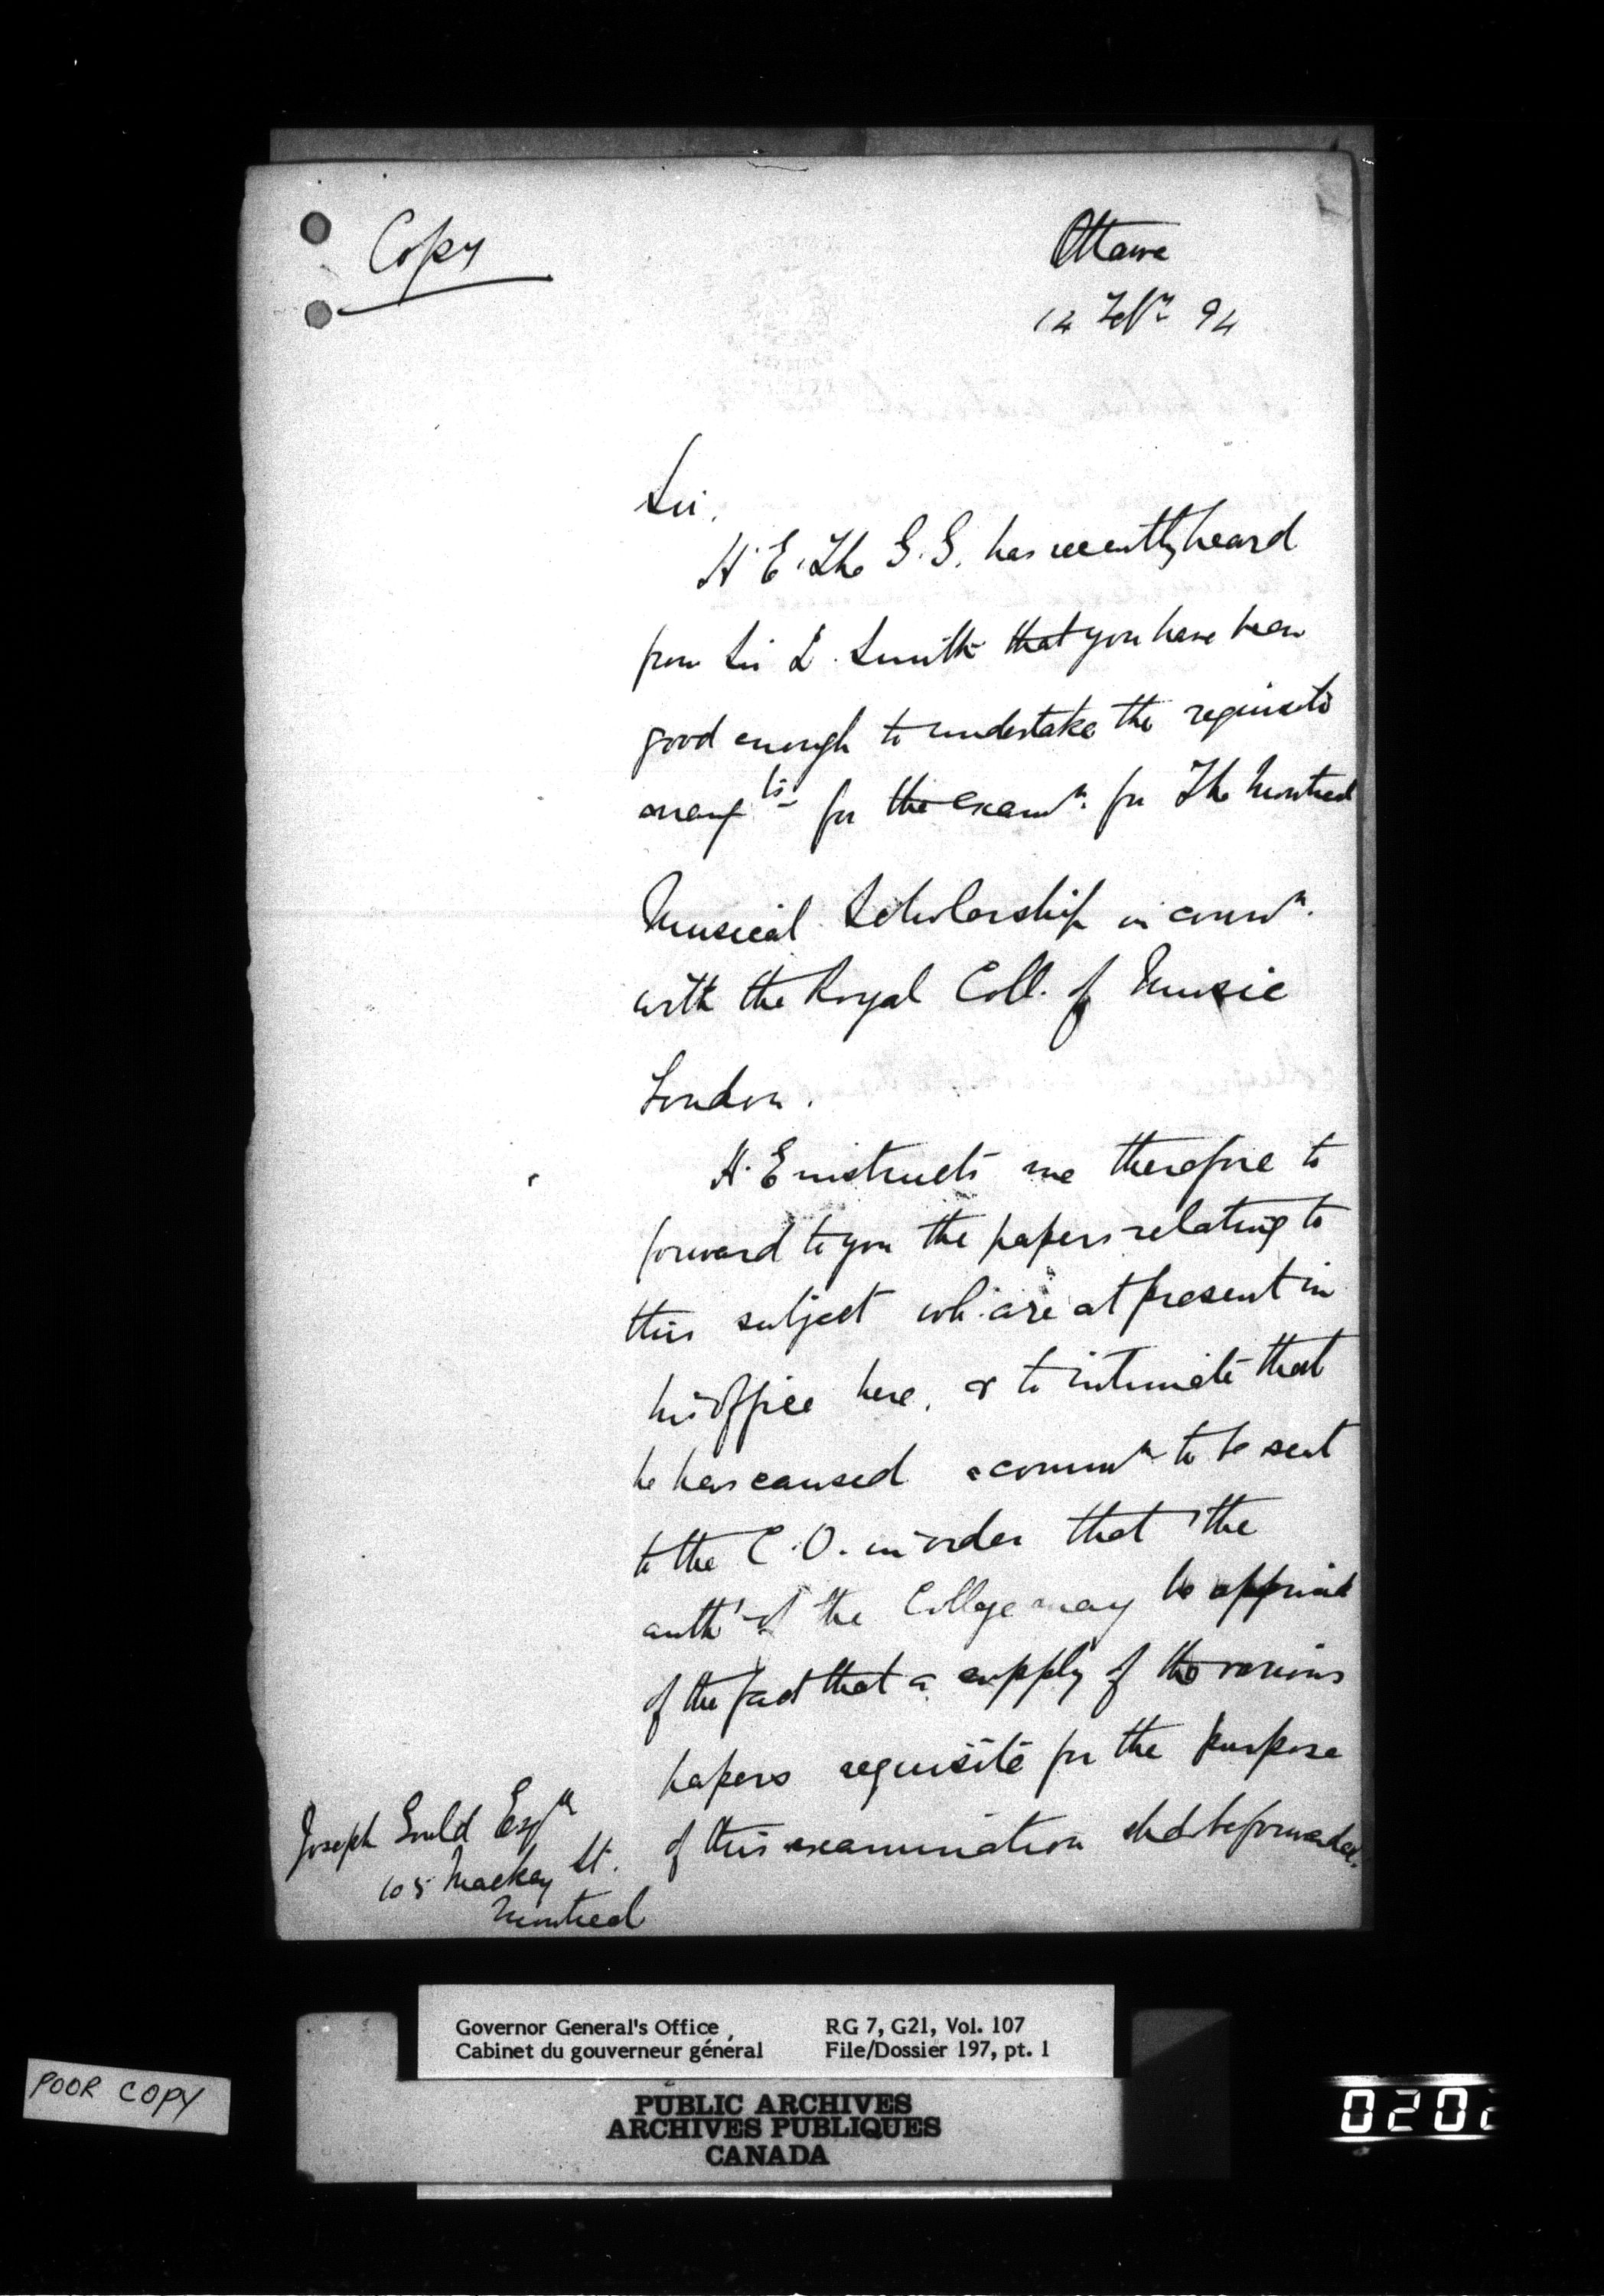 Copy
Ottawa
12 Feby 94
Sir,
H.E. The G.G. has recently heard
from Sir D. Smith that you have been
good enough to undertake the requisite
arangts for the examn. for The Montreal
Musical Scholarship in conn.
with the Royal Coll. of Music
London.
H.E instructs me therefore to
forward to you the papers relating to
this subject wh. are at present in
his office here, & to intimate that
he has caused a commn to be sent
to the C.O. in order that the
auths of the College may be apprised
of the fact that a supply of the various
papers requisite for the purpose
of this examination shd be forwarded.
Joseph Gould Esqre
105 Mackay St.
Montreal
Governor General's Office, RG 7, G21, Vol. 107
Cabinet du gouverneur général File/Dossier 197, pt. 1
PUBLIC ARCHIVES
ARCHIVES PUBLIQUES
CANADA
POOR COPY
0202